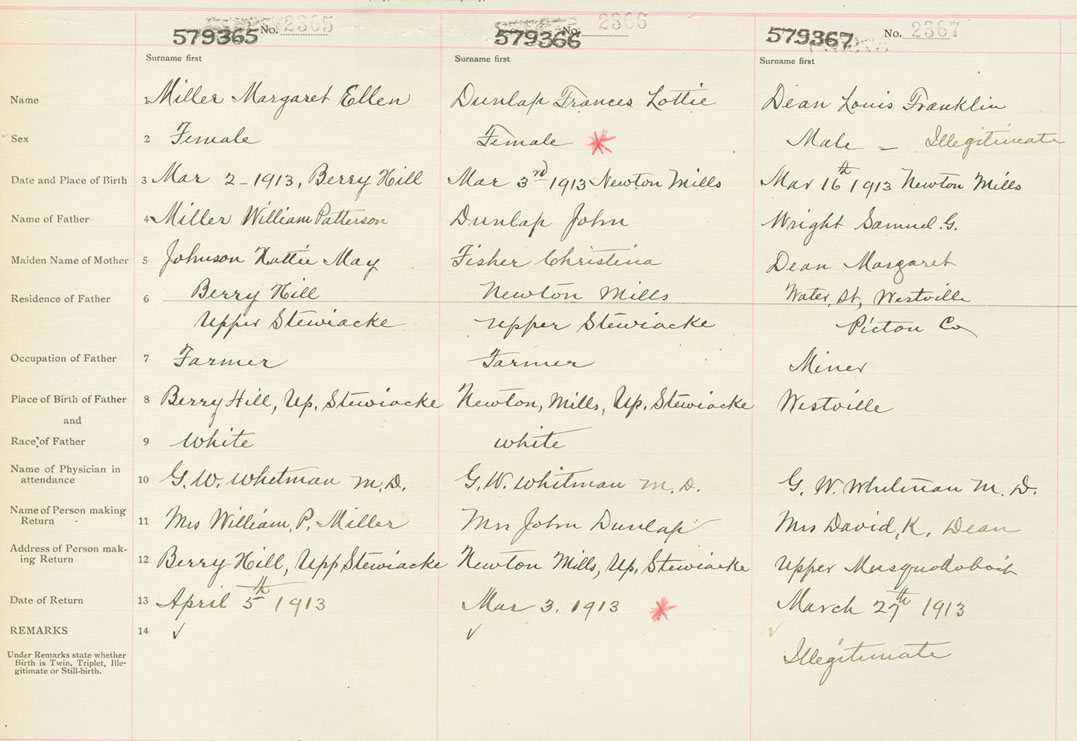 579365 No. 2365 579366 No. 2366 579367 No. 2367
Surname first Surname first Surname first
Name 1 Miller Margaret Ellen Dunlap Frances Lottie Dean Louis Franklin
Sex 2 Female Female Male - Illegitimate
Date and Place of Birth 3 Mar 2-1913, Berry Hill Mar 3rd 1913 Newton Mills Mar 16th 1913 Newton Mills
Name of Father 4 Miller William Patterson Dunlap John Wright Samuel G.
Maiden Name of Mother 5 Johnson Hattie May Fisher Christina Dean Margaret
Residence of Father 6 Berry Hill Newton Mills Water, St, Westville
Upper Stewiacke Upper Stewiacke Picton Co
Occupation of Father 7 Farmer Farmer Miner
Place of Birth of Father 8 Berry Hill, Up, Stewiacke Newton, Mills, Up, Stewiacke Westville
and
Race of Father 9 White White
Name of Physician in
attendance 10 G. W. Whitman M. D. G. W. Whitman M. D. G. W. Whitman M. D.
Name of Person making
Return 11 Mrs William, P. Miller Mrs John Dunlap Mrs David, K, Dean
Address of Person mak-
ing Return 12 Berry Hill, Upp Stewiacke Newton Mills, Up, Stewiacke Upper Musquodoboit
Date of Return 13 April 5th 1913 Mar 3. 1913 March 27th 1913
REMARKS 14
Under Remarks state whether
Birth is Twin, Triplet, Ille-
gitimate or Still-birth.
Illegitimate